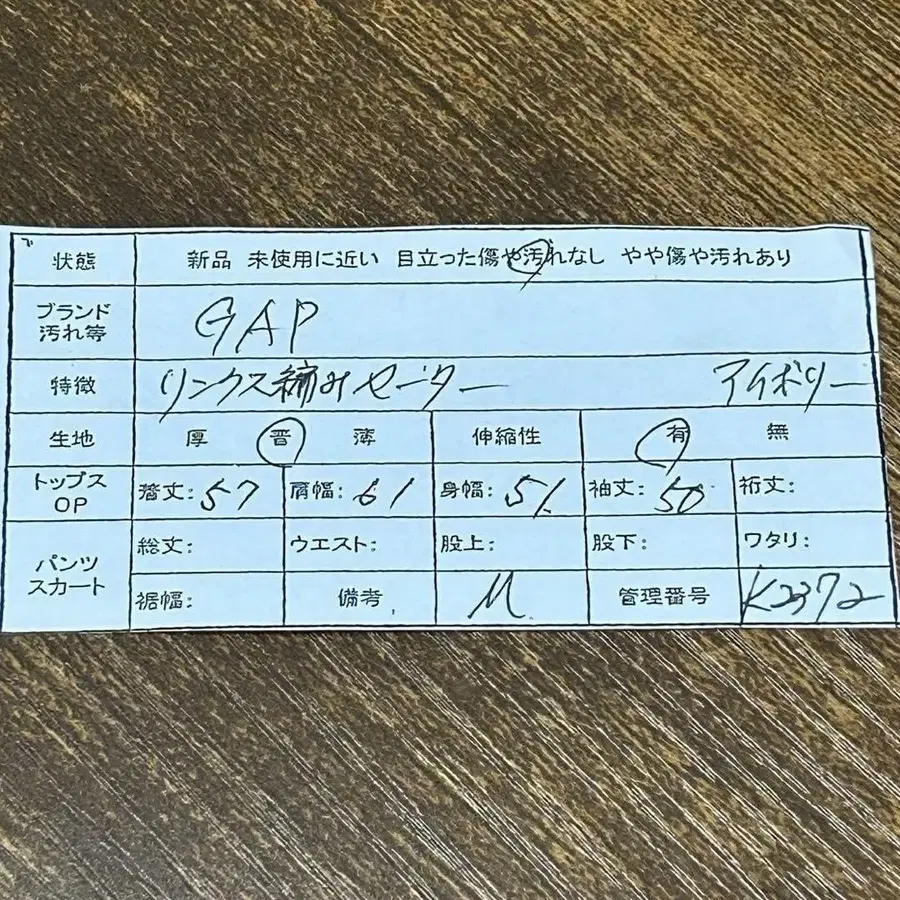 状態 新品 未使用に近い 目立った傷や汚れなし やや傷や汚れあり
ブランド
汚れ等 GAP
特徴 リンクス編みセーター アイボリー
生地 厚 普 薄 伸縮性 有 無
トップス
OP 着丈: 57 肩幅: 61 身幅: 51 袖丈: 50 裄丈:
パンツ
スカート 総丈: ウエスト: 股上: 股下: ワタリ:
裾幅: 備考 M 管理番号 K2372